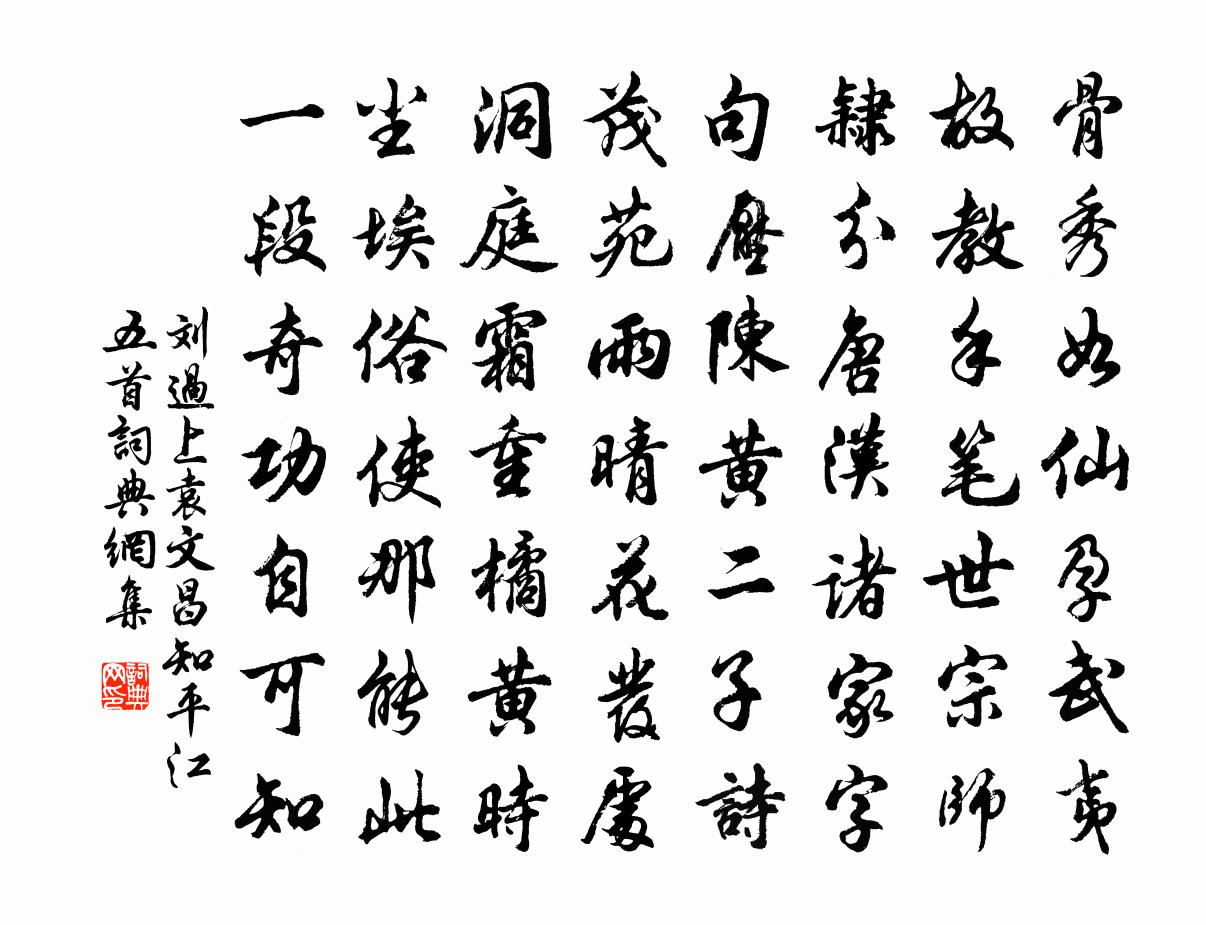 骨秀如仙孕武夷
故教手笔世宗師
隸分唐漢諸家字
句壓陳黄二子詩
茂苑雨晴花發處
洞庭霜重橘黄時
尘埃俗使那能此
一段奇功自可知
刘過上袁文昌知平江
五首詞典網集
詞典网印